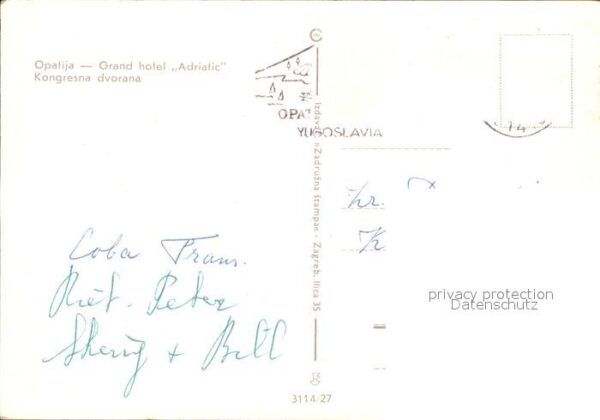 Opatija — Grand hotel „Adriatic"
Kongresna dvorana
OPAT
YUGOSLAVIA
74
Izdavač »Zadružna štampa« - Zagreb, Ilica 35
hr.
K
privacy protection
Datenschutz
Coba Frans.
Riet. Peter
Sherry + Bill
3114/27